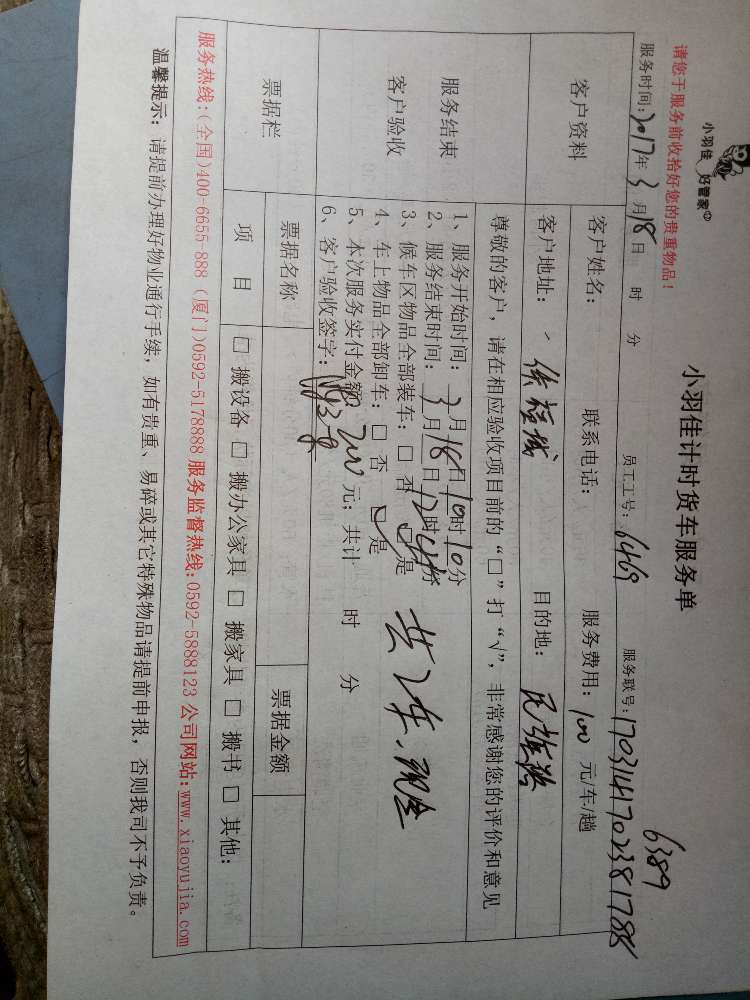 小羽佳 好管家
小羽佳计时货车服务单
请您于服务前收拾好您的贵重物品!
6389
服务时间: 2017年 3月 18日 时 分 员工工号: 6469 服务联号:
客户资料
客户姓名: 联系电话: 服务费用: 100 元/车/趟
客户地址: 目的地:
服务结束
客户验收
尊敬的客户,请在相应验收项目前的“□”打“√”,非常感谢您的评价和意见
1、服务开始时间: 3月18日10时10分
2、服务结束时间: 3月18日12时 分
3、候车区物品全部装车: □ 否 □ 是
4、车上物品全部卸车: □ 否 □ 是
5、本次服务实付金额 200 元; 共计 时 分
6、客户验收签字:
共2车,现金
票据栏
票据名称 票据金额
项 目 □ 搬设备 □ 搬办公家具 □ 搬家具 □ 搬书 □ 其他:
服务热线:(全国)400-6655-888 (厦门)0592-5178888 服务监督热线:0592-5888123 公司网站:www.xiaoyujia.com
温馨提示: 请提前办理好物业通行手续,如有贵重、易碎或其它特殊物品请提前申报,否则我司不予负责。